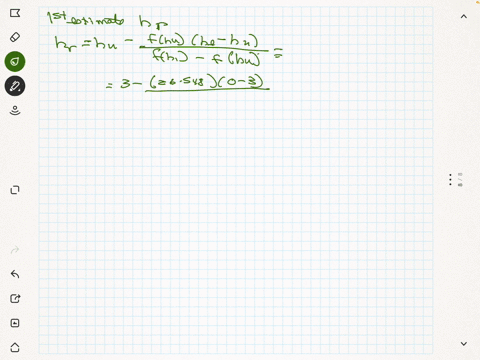 1st estimate hr
hr = hu - f(hu) (hl - hu) / f(hl) - f(hu) =
= 3 - (26.548)(0-3)